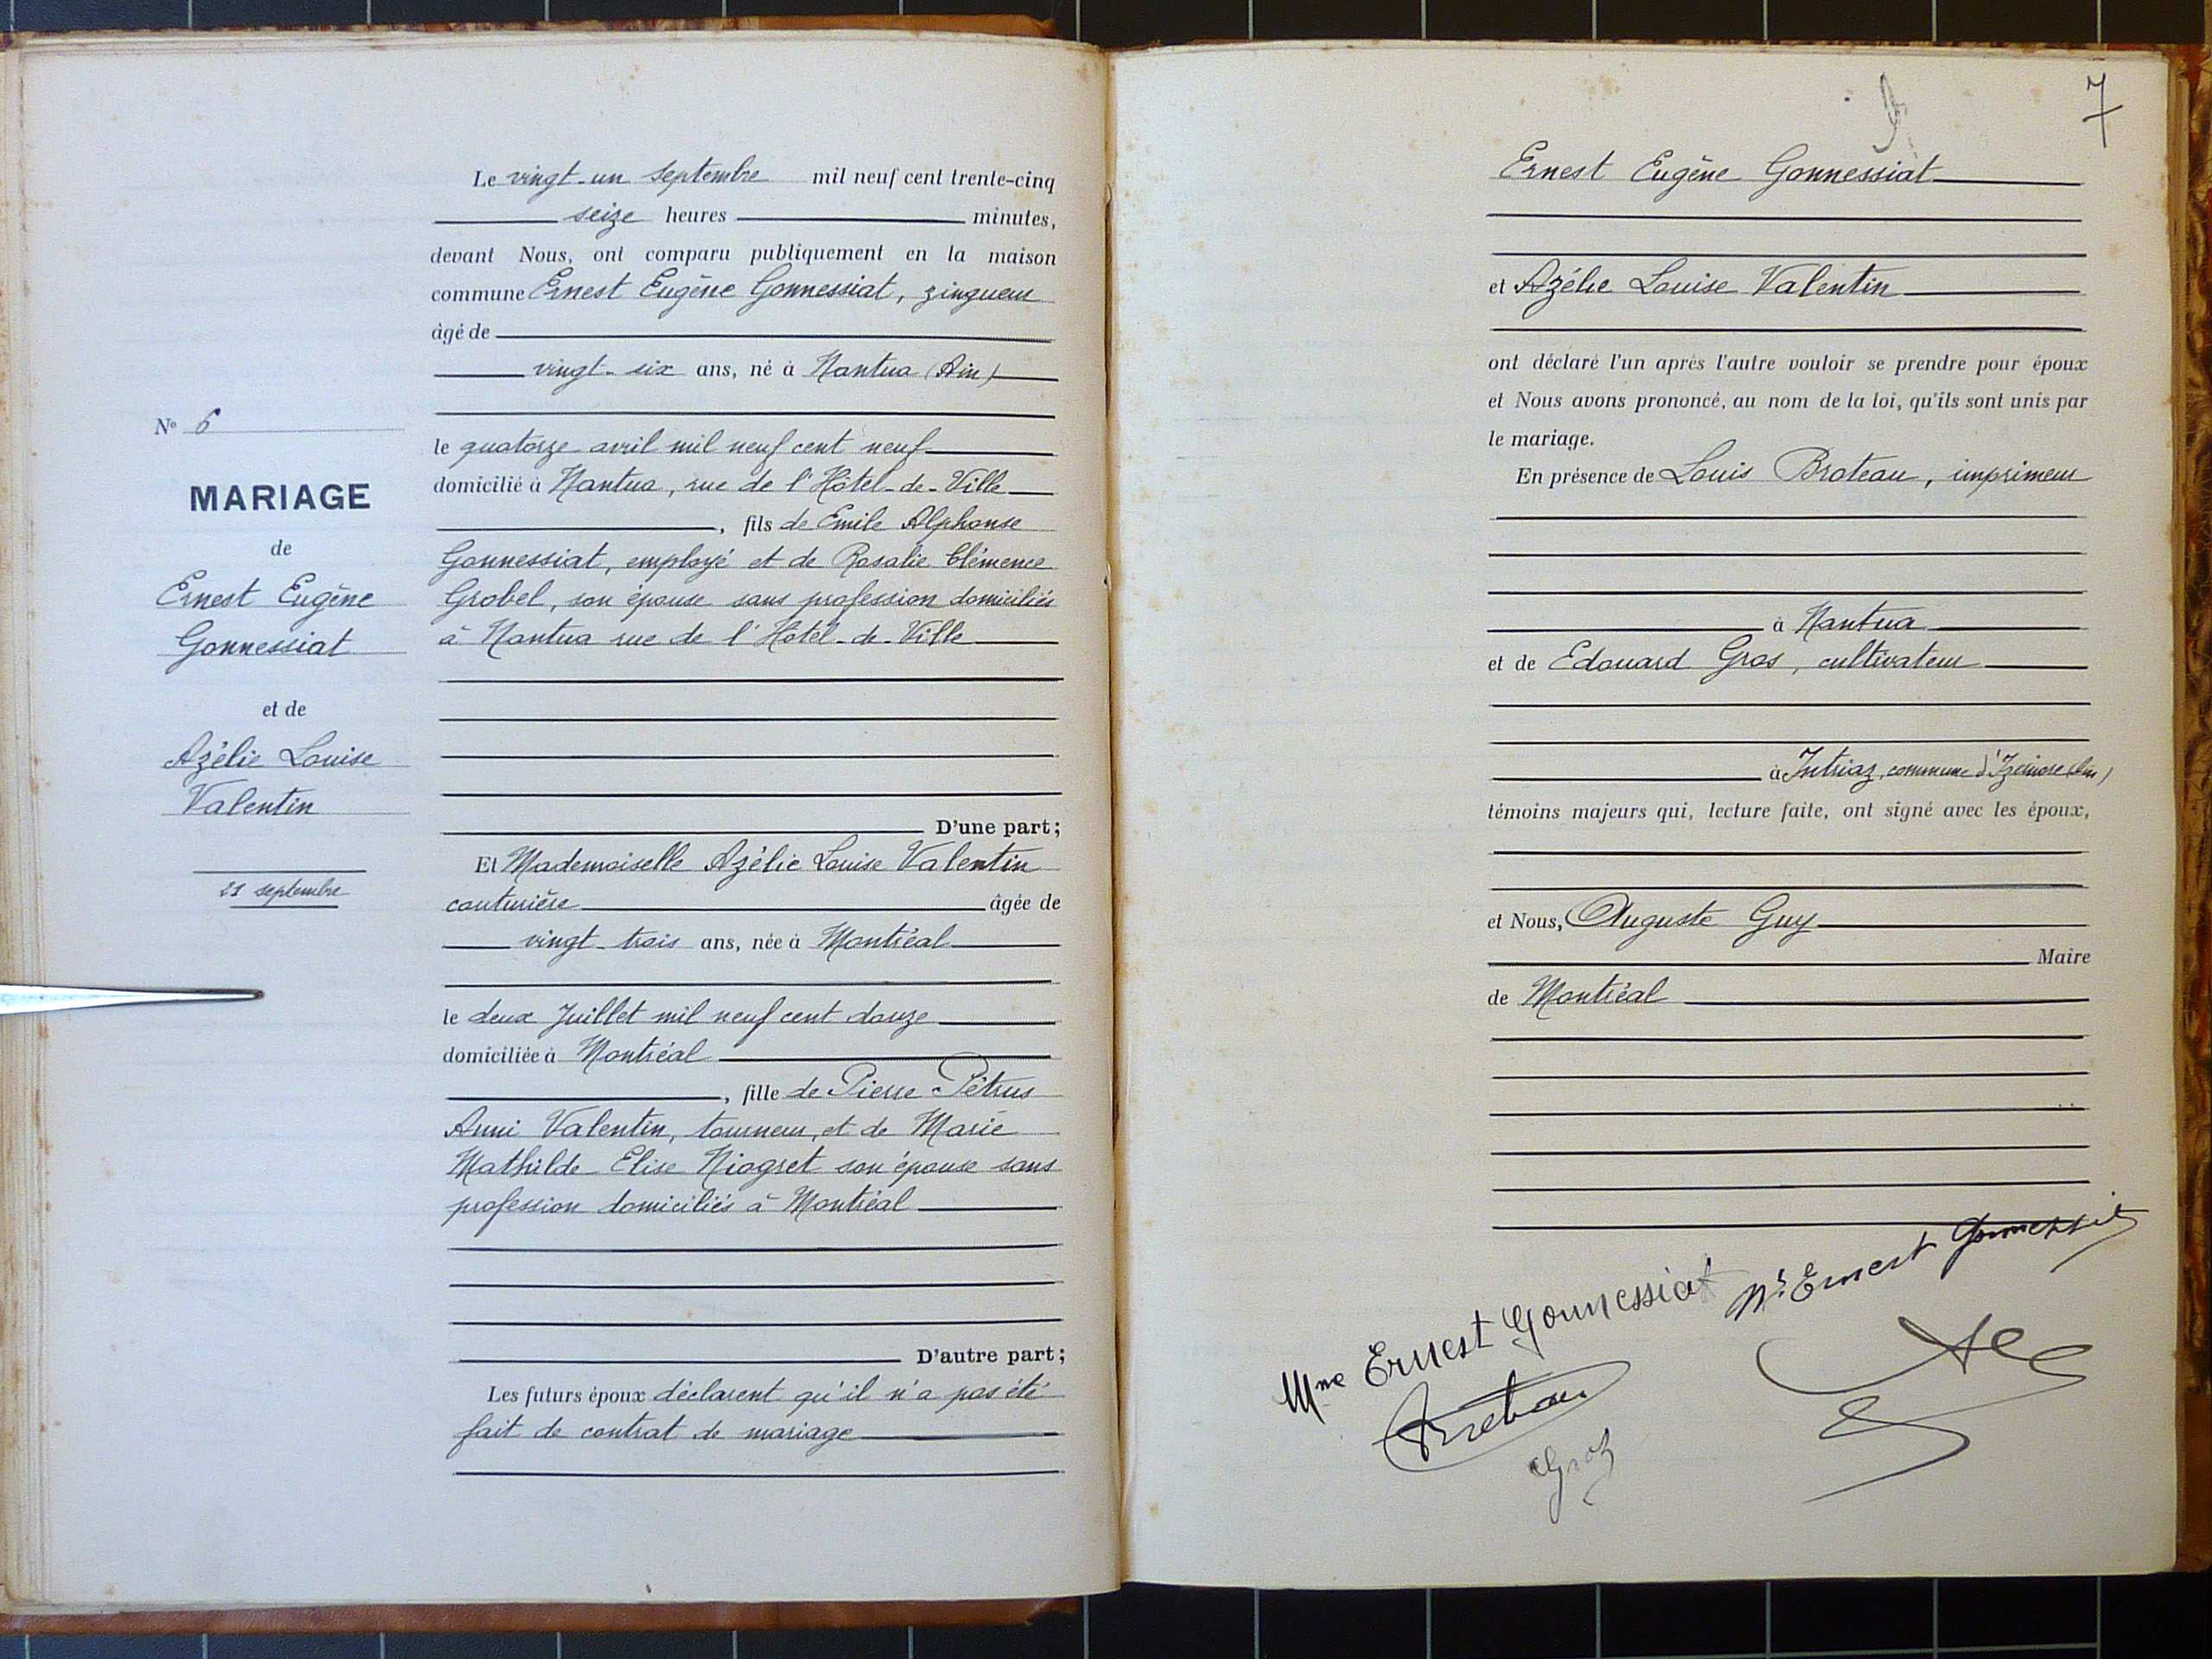 Nº 6
MARIAGE
de
Ernest Eugène
Gonnessiat
et de
Azélie Louise
Valentin
21 septembre
Le vingt-un septembre mil neuf cent trente-cinq
seize heures minutes,
devant Nous, ont comparu publiquement en la maison
commune Ernest Eugène Gonnessiat, zingueur
âgé de
vingt-six ans, né à Nantua (Ain)
le quatorze avril mil neuf cent neuf
domicilié à Nantua, rue de l'Hôtel-de-Ville
, fils de Emile Alphonse
Gonnessiat, employé et de Rosalie Clémence
Grobel, son épouse sans profession domiciliés
à Nantua rue de l'Hôtel-de-Ville
D'une part;
Et Mademoiselle Azélie Louise Valentin
couturière âgée de
vingt-trois ans, née à Montréal
le deux Juillet mil neuf cent douze
domiciliée à Montréal
, fille de Pierre Pétrus
Anni Valentin, tourneur, et de Marie
Mathilde Elise Niogret son épouse sans
profession domiciliés à Montréal
D'autre part;
Les futurs époux déclarent qu'il n'a pas été
fait de contrat de mariage
7
Ernest Eugène Gonnessiat
et Azélie Louise Valentin
ont déclaré l'un après l'autre vouloir se prendre pour époux
et Nous avons prononcé, au nom de la loi, qu'ils sont unis par
le mariage.
En présence de Louis Broteau, imprimeur
à Nantua
et de Edouard Gros, cultivateur
à Intriaz, commune d'Izernore (Ain)
témoins majeurs qui, lecture faite, ont signé avec les époux,
et Nous, Auguste Guy
Maire
de Montréal
Mme Ernest Gonnessiat Mr. Ernest Gonnessiat
Broteau
Gros